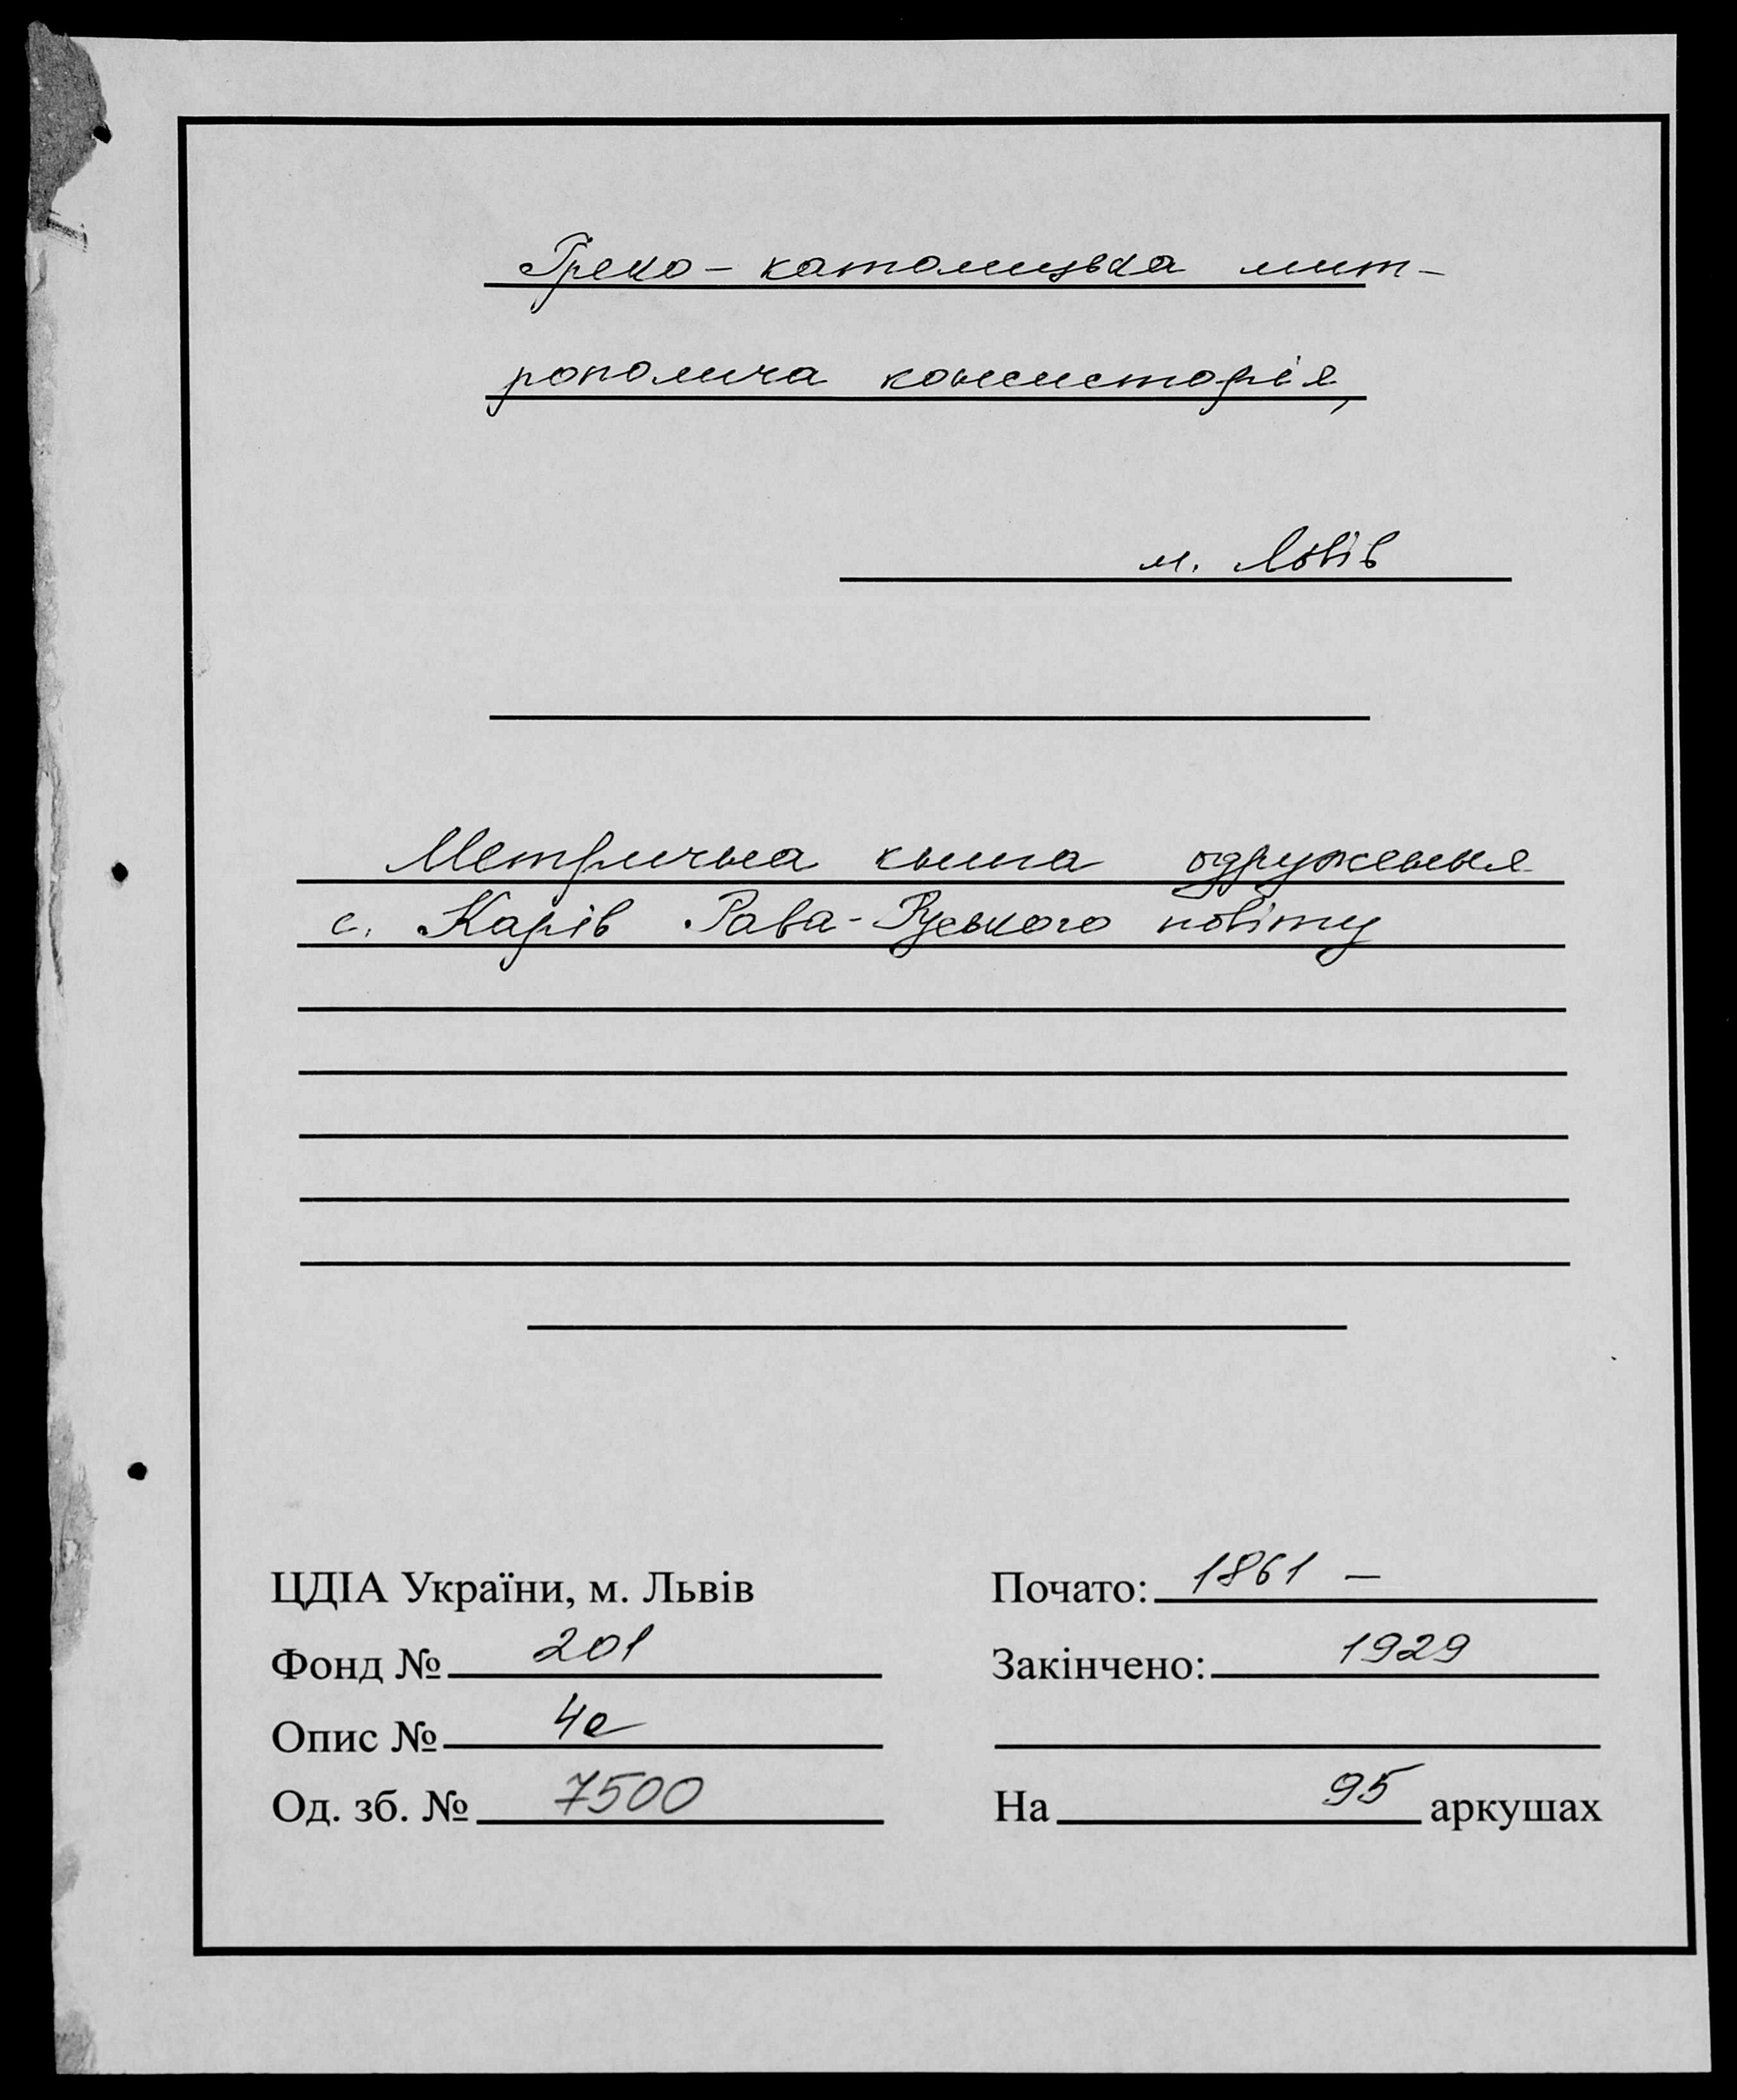 Греко-католицька мит-
рополича консисторія,
м. Львів
Метрична книга одруження
с. Карів Рава-Руського повіту
ЦДІА України, м. Львів
Почато: 1861 —
Фонд № 201
Закінчено: 1929
Опис № 4а
Од. зб. № 7500
На 95 аркушах